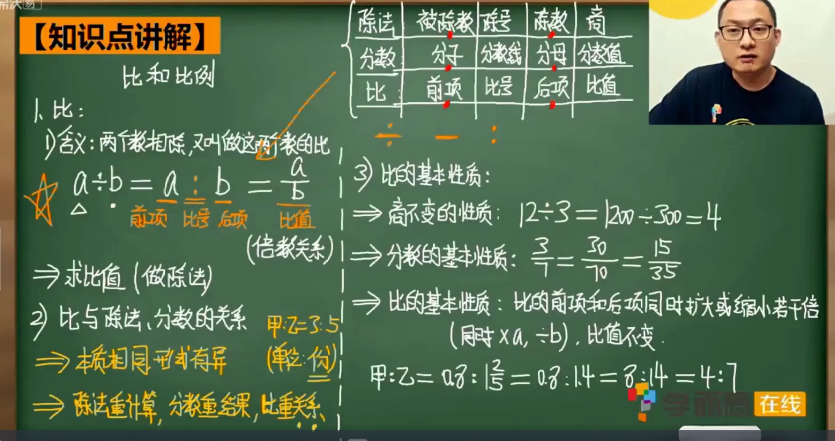 【知识点讲解】
比和比例
1、比:
1)含义:两个数相除,又叫做这两个数的比
a÷b=a:b=a/b
前项 比号 后项 比值
(倍数关系)
⇒求比值(做除法)
2)比与除法、分数的关系
甲:乙=3:5
⇒本质相同形式有异 (单位:份)
⇒除法重计算,分数重结果,比重关系
除法 被除数 除号 除数 商
分数 分子 分数线 分母 分数值
比: 前项 比号 后项 比值
÷ — :
3)比的基本性质:
⇒商不变的性质:12÷3=1200÷300=4
⇒分数的基本性质:3/7=30/70=15/35
⇒比的基本性质:比的前项和后项同时扩大或缩小若干倍
(同时×a,÷b),比值不变.
甲:乙=0.8:1 2/5=0.8:1.4=8:14=4:7
学而思在线